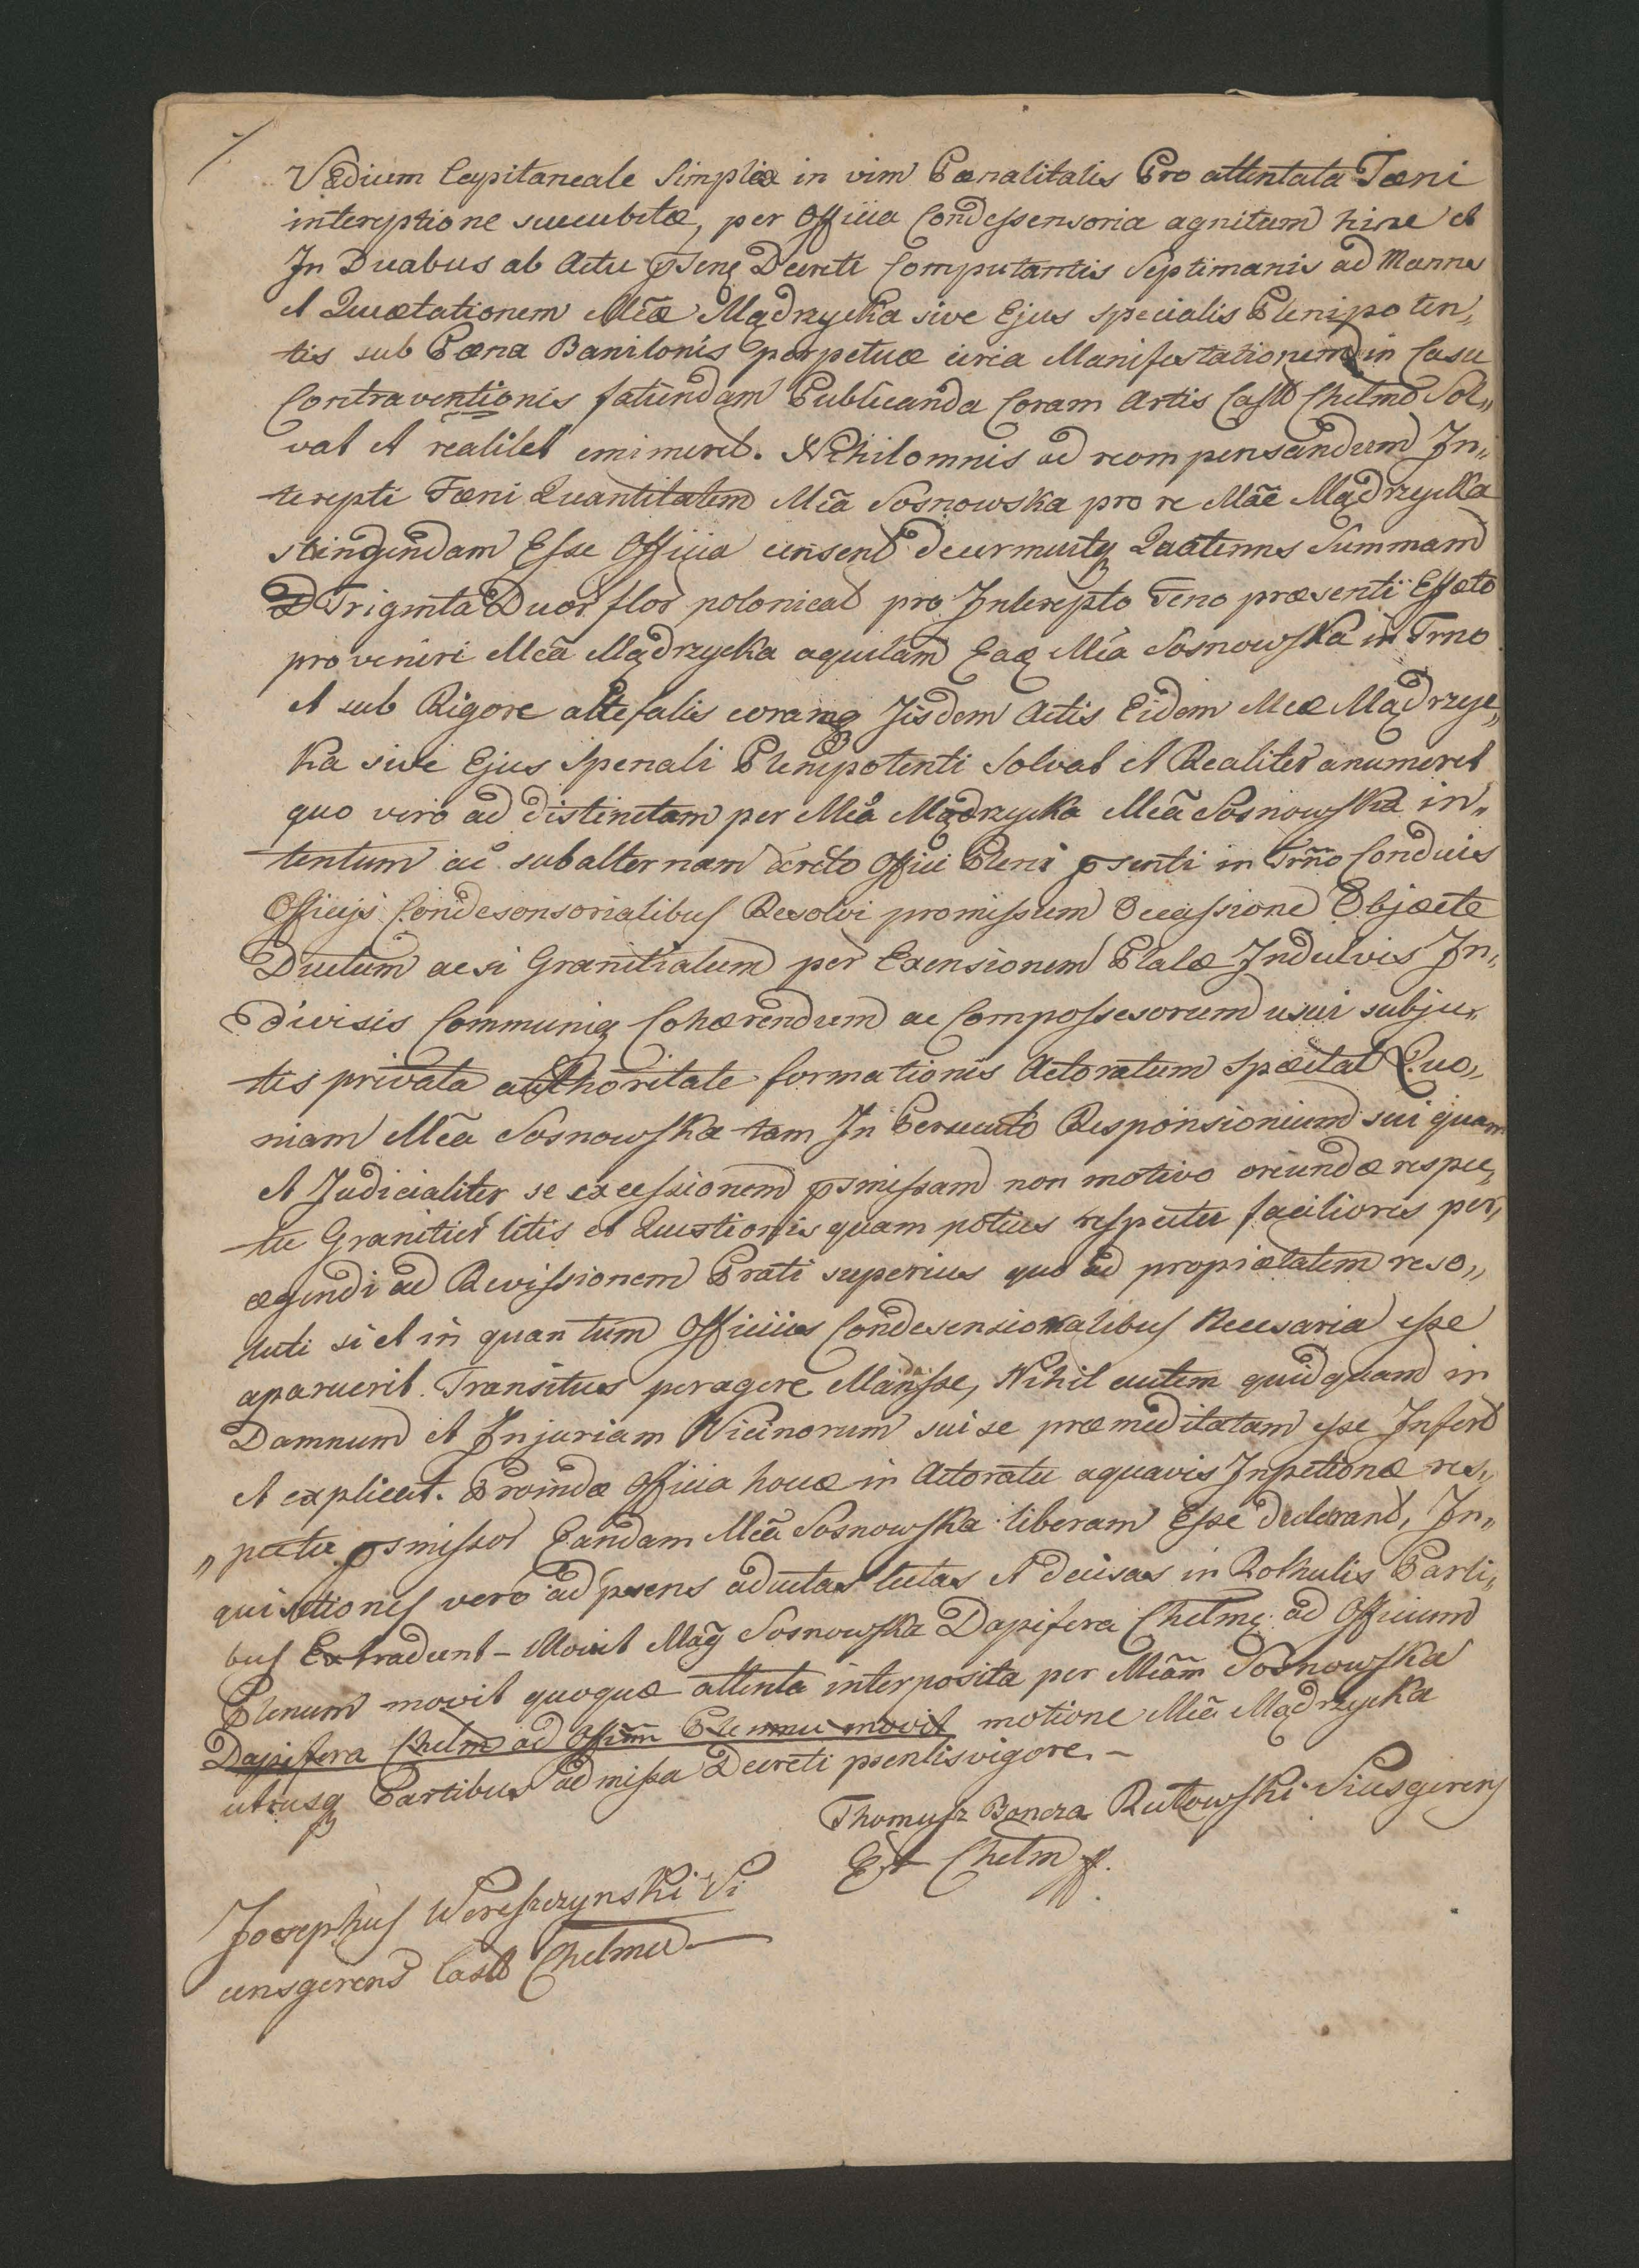 Vadium Capitaneale Simplex in vim Pœnalitatis Pro attentata Fœni
interceptione succubitæ, per Officia Condessensoria agnitum hinc et
In Duabus ab Actu Decreti Computantis Septimanis ad Manus
et Quætationem Mcæ Mądrzycka sive Ejus specialis Plenipoten„
tis sub Pœna Banitonis perpetuæ circa Manifestationem in Casu
Contraventionis fatiendam Publicanda Coram Actis Castr Chelmo Sol„
vat et realitet Nihilomnis ad recompensandum In„
tercepti Fœni Quantitatem Mca Sosnowska pro re Mcæ Mądrzycka
Esse Officia censent Quatenus Summam
Triginta Duor flor polonical pro Intercepto Feno præsenti Effecto
proveniri Mca Mądrzycka Mca Sosnowska in Trno
et sub Rigore Jisdem Actis Eidem Mcæ Mądrzyc„
ka sive Ejus Spenali Plenipotenti Solvat et Realiter anumeret
quo vero ad distinctam per Mca Mądrzycka Mca Sosnowska in„
tentum ac subalternam Offici Pleni psenti in Trño Conducis
Officijs Condesonsorialibus Resolvi promissum Occassione Objecte
Ductum acsi Granitialem per Indulvis In„
divisis Communiq Cohærendum ac Compossesorum usui subju„
tis privata authoritate formationis Actoratum Spectat Quo„
niam Mca Sosnowska tam In Responsionium sui quam
et Judicialiter se excessionem psmissam non motivo oriundæ respec„
tu Granitier litis et Questionis quam potius respectu facilioris per„
agendi ad Revissionem Prati superius quo ad propiætatem reso„
luti si et in quantum Officiis Condesensionalibus Necesaria esse
aparuerit. Transitus peragere Mandsse, Nihil autem quidquam in
Damnum et Injuriam Vicinorum sui se præmeditatam esse Infert
et explicat. Proindæ Officia houæ in Actoratu aquavis Inpetionæ res„
„pectu psmissor Eandam Mca Sosnowska liberam Esse declarant, In„
quisitiones vero ad psens aductas lectas et decisas in Rothulis Parti„
bus Extradunt – Movit Mag Sosnowska Dapifera Chelme ad Officium
Plenum movit quoquæ attenta interposita per Mcam Sosnowska
Dapifera Chelm ad Offium Plenum movit motione Mca Mądrzycka
utriusq Partibus admissa Decreti psentis vigore. –
Thomasz Boncza Rutowski Viusgerens
Est Chelm
Josephus Wereszczynski Vi
censgerens Castr Chelmu